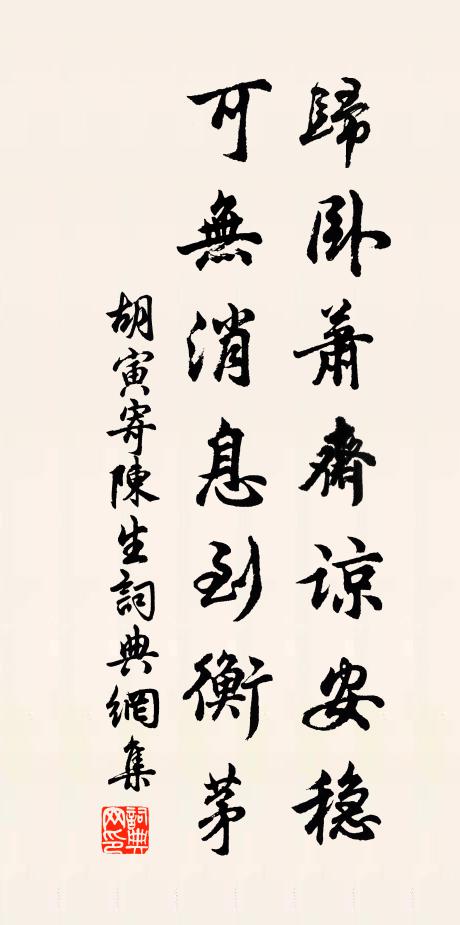 歸卧蕭齋諒安穏
可無消息到衡茅
胡寅寄陳生詞典網集
詞典网印